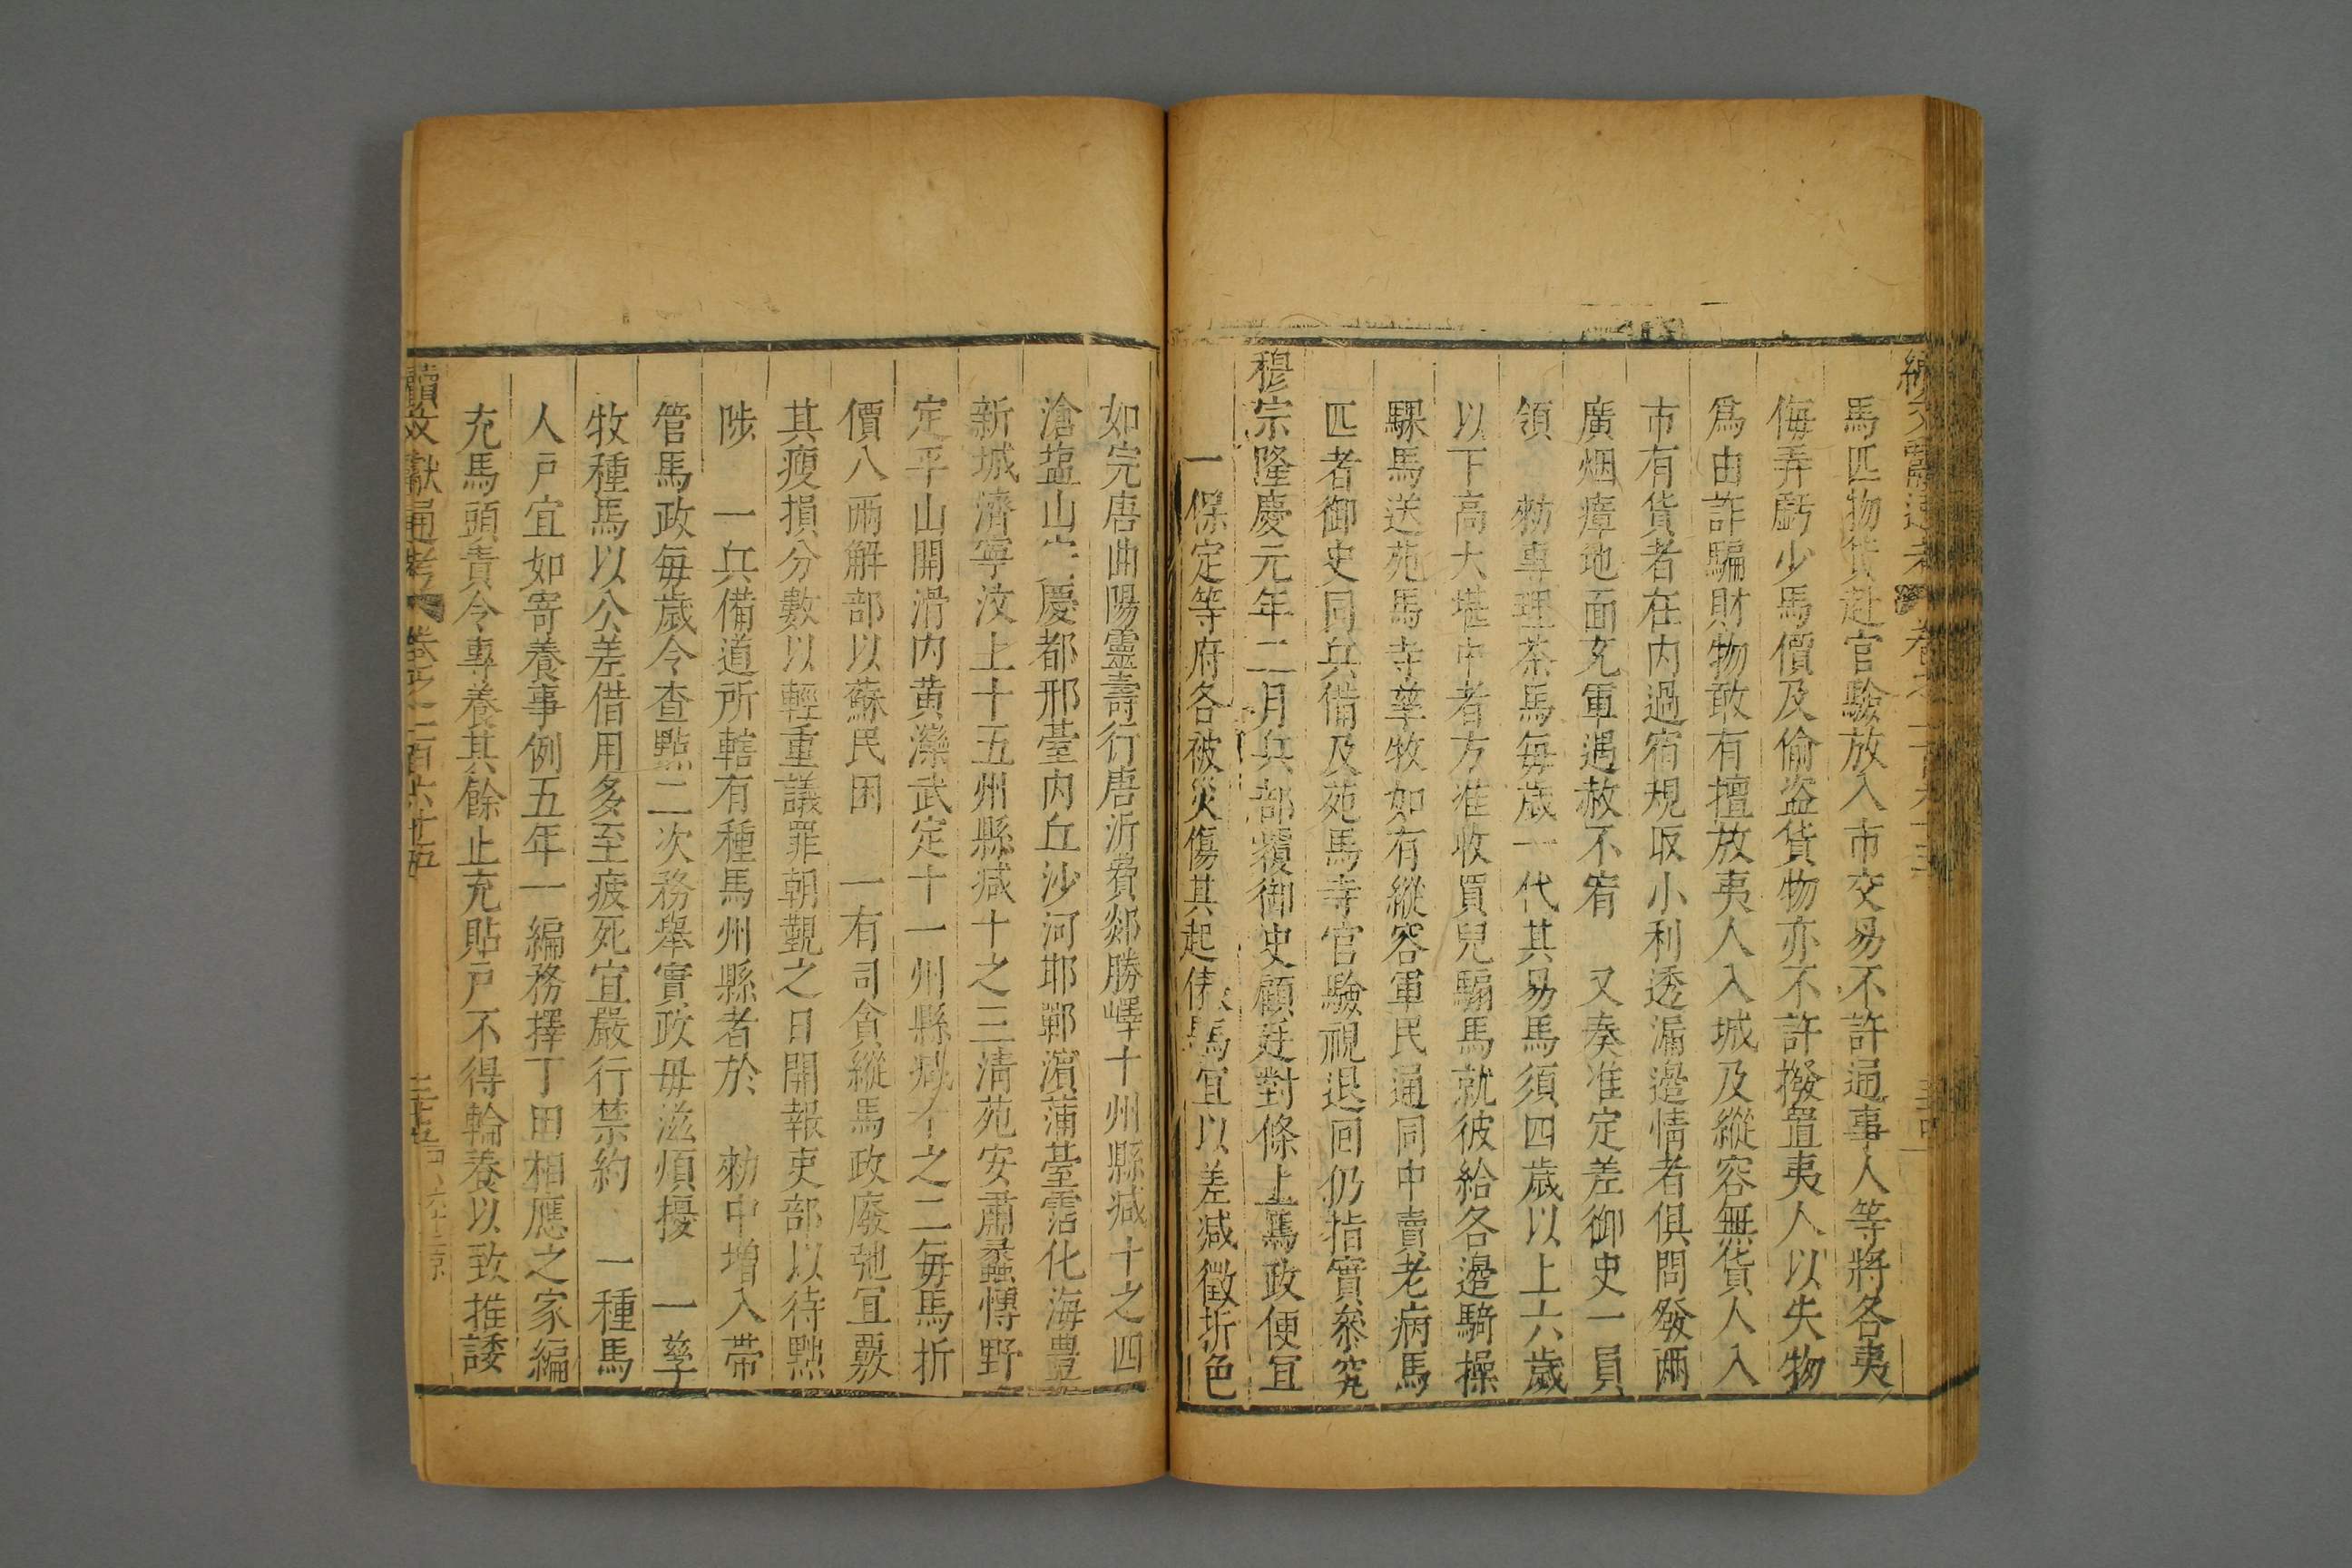 馬匹物貨赴官驗放入市交易不許通事人等將各夷
侮弄虧少馬價及偷盜貨物亦不許撥置夷人以失物
爲由詐騙財物敢有擅放夷人入城及縱容無貨人入
市有貨者在內過宿規取小利透漏邊情者俱問發兩
廣烟瘴地面充軍遇赦不宥　又奏准定差御史一員
領　勑專理茶馬每歲一代其易馬須四歲以上六歲
以下高大堪中者方准收買兒騸馬就彼給各邊騎操
騍馬送苑馬寺孳牧如有縱容軍民通同中賣老病馬
匹者御史同兵備及苑馬寺官驗視退回仍指實參究
穆宗隆慶元年二月兵部覆御史顧廷對條上馬政便宜
一保定等府各被災傷其起俵馬宜以差減徵折色
如完唐曲陽靈壽行唐沂費郯勝嶧十州縣減十之四
滄塩山慶都邢臺內丘沙河耶鄲濵蒲臺霑化海豊
新城濟寧汶上十五州縣減十之三清苑安肅蠡愽野
定平山開滑內黄濼武定十一州縣減十之二每馬折
價八兩解部以蘇民困　一有司貪縱馬政廢弛宜覈
其瘦損分數以輕重議罪朝覲之日開報吏部以待黜
陟　一兵備道所轄有種馬州縣者於　勑中增入帶
管馬政每歲令查㸃二次務舉實政毋滋煩擾　一孳
牧種馬以公差借用多至疲死宜嚴行禁約　一種馬
人戶宜如寄養事例五年一編務擇丁田相應之家編
充馬頭責令專養其餘止充貼戶不得輪養以致推諉
續文獻通考　卷之二百六十五　三十五